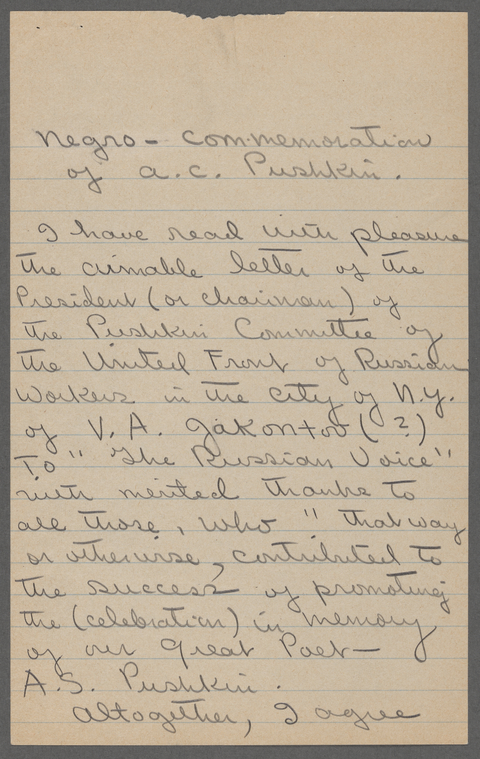 Negro - Commemoration
of A.C. Pushkin.
I have read with pleasure
the aimable letter of the
President (or chairman) of
the Pushkin Committee of
the United Front of Russian
Workers in the City of N.Y.
of V. A. Jakontov (?)
To "The Russian Voice"
with merited thanks to
all those, who "that way
or otherwise, contributed to
the success of promoting
the (celebration) in memory
of our Great Poet—
A.S. Pushkin.
Altogether, I agree